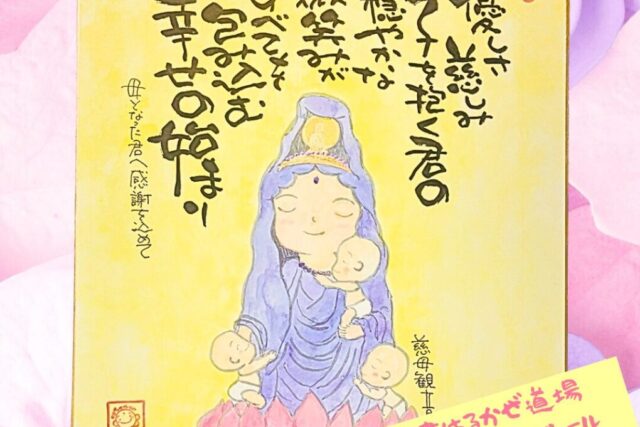 優しさ 慈しみ
を抱く君の
穏やかな
微笑みが
すべてを
包み込む
幸せの始まり
母となった君へ感謝を込めて
慈母観音
はるかぜ道場